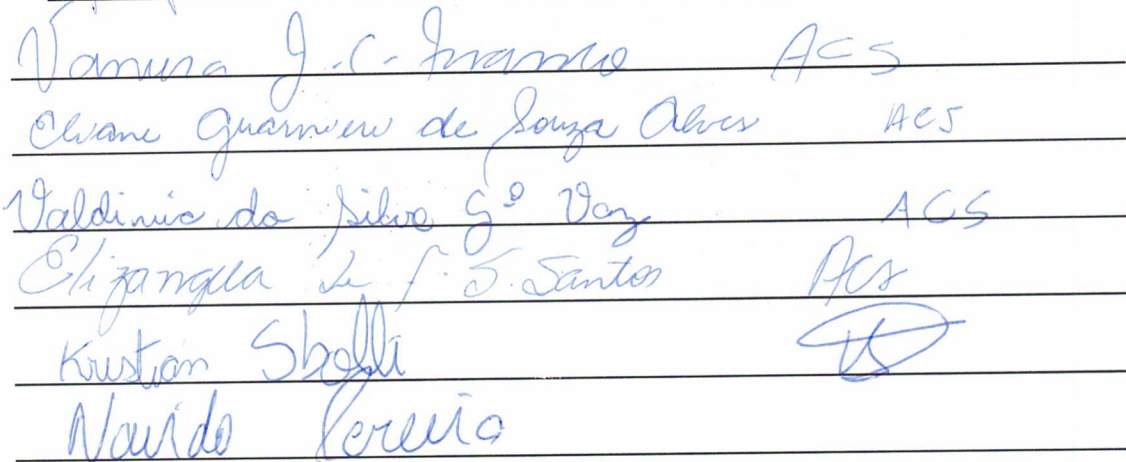 Vanusa J. C. ACS
Eliane Guarnieri de Souza Alves ACS
Valdinéia da Silva Gº Vaz ACS
Elizangela de F. S. Santos ACS
Kristian Sbolli
Pereira